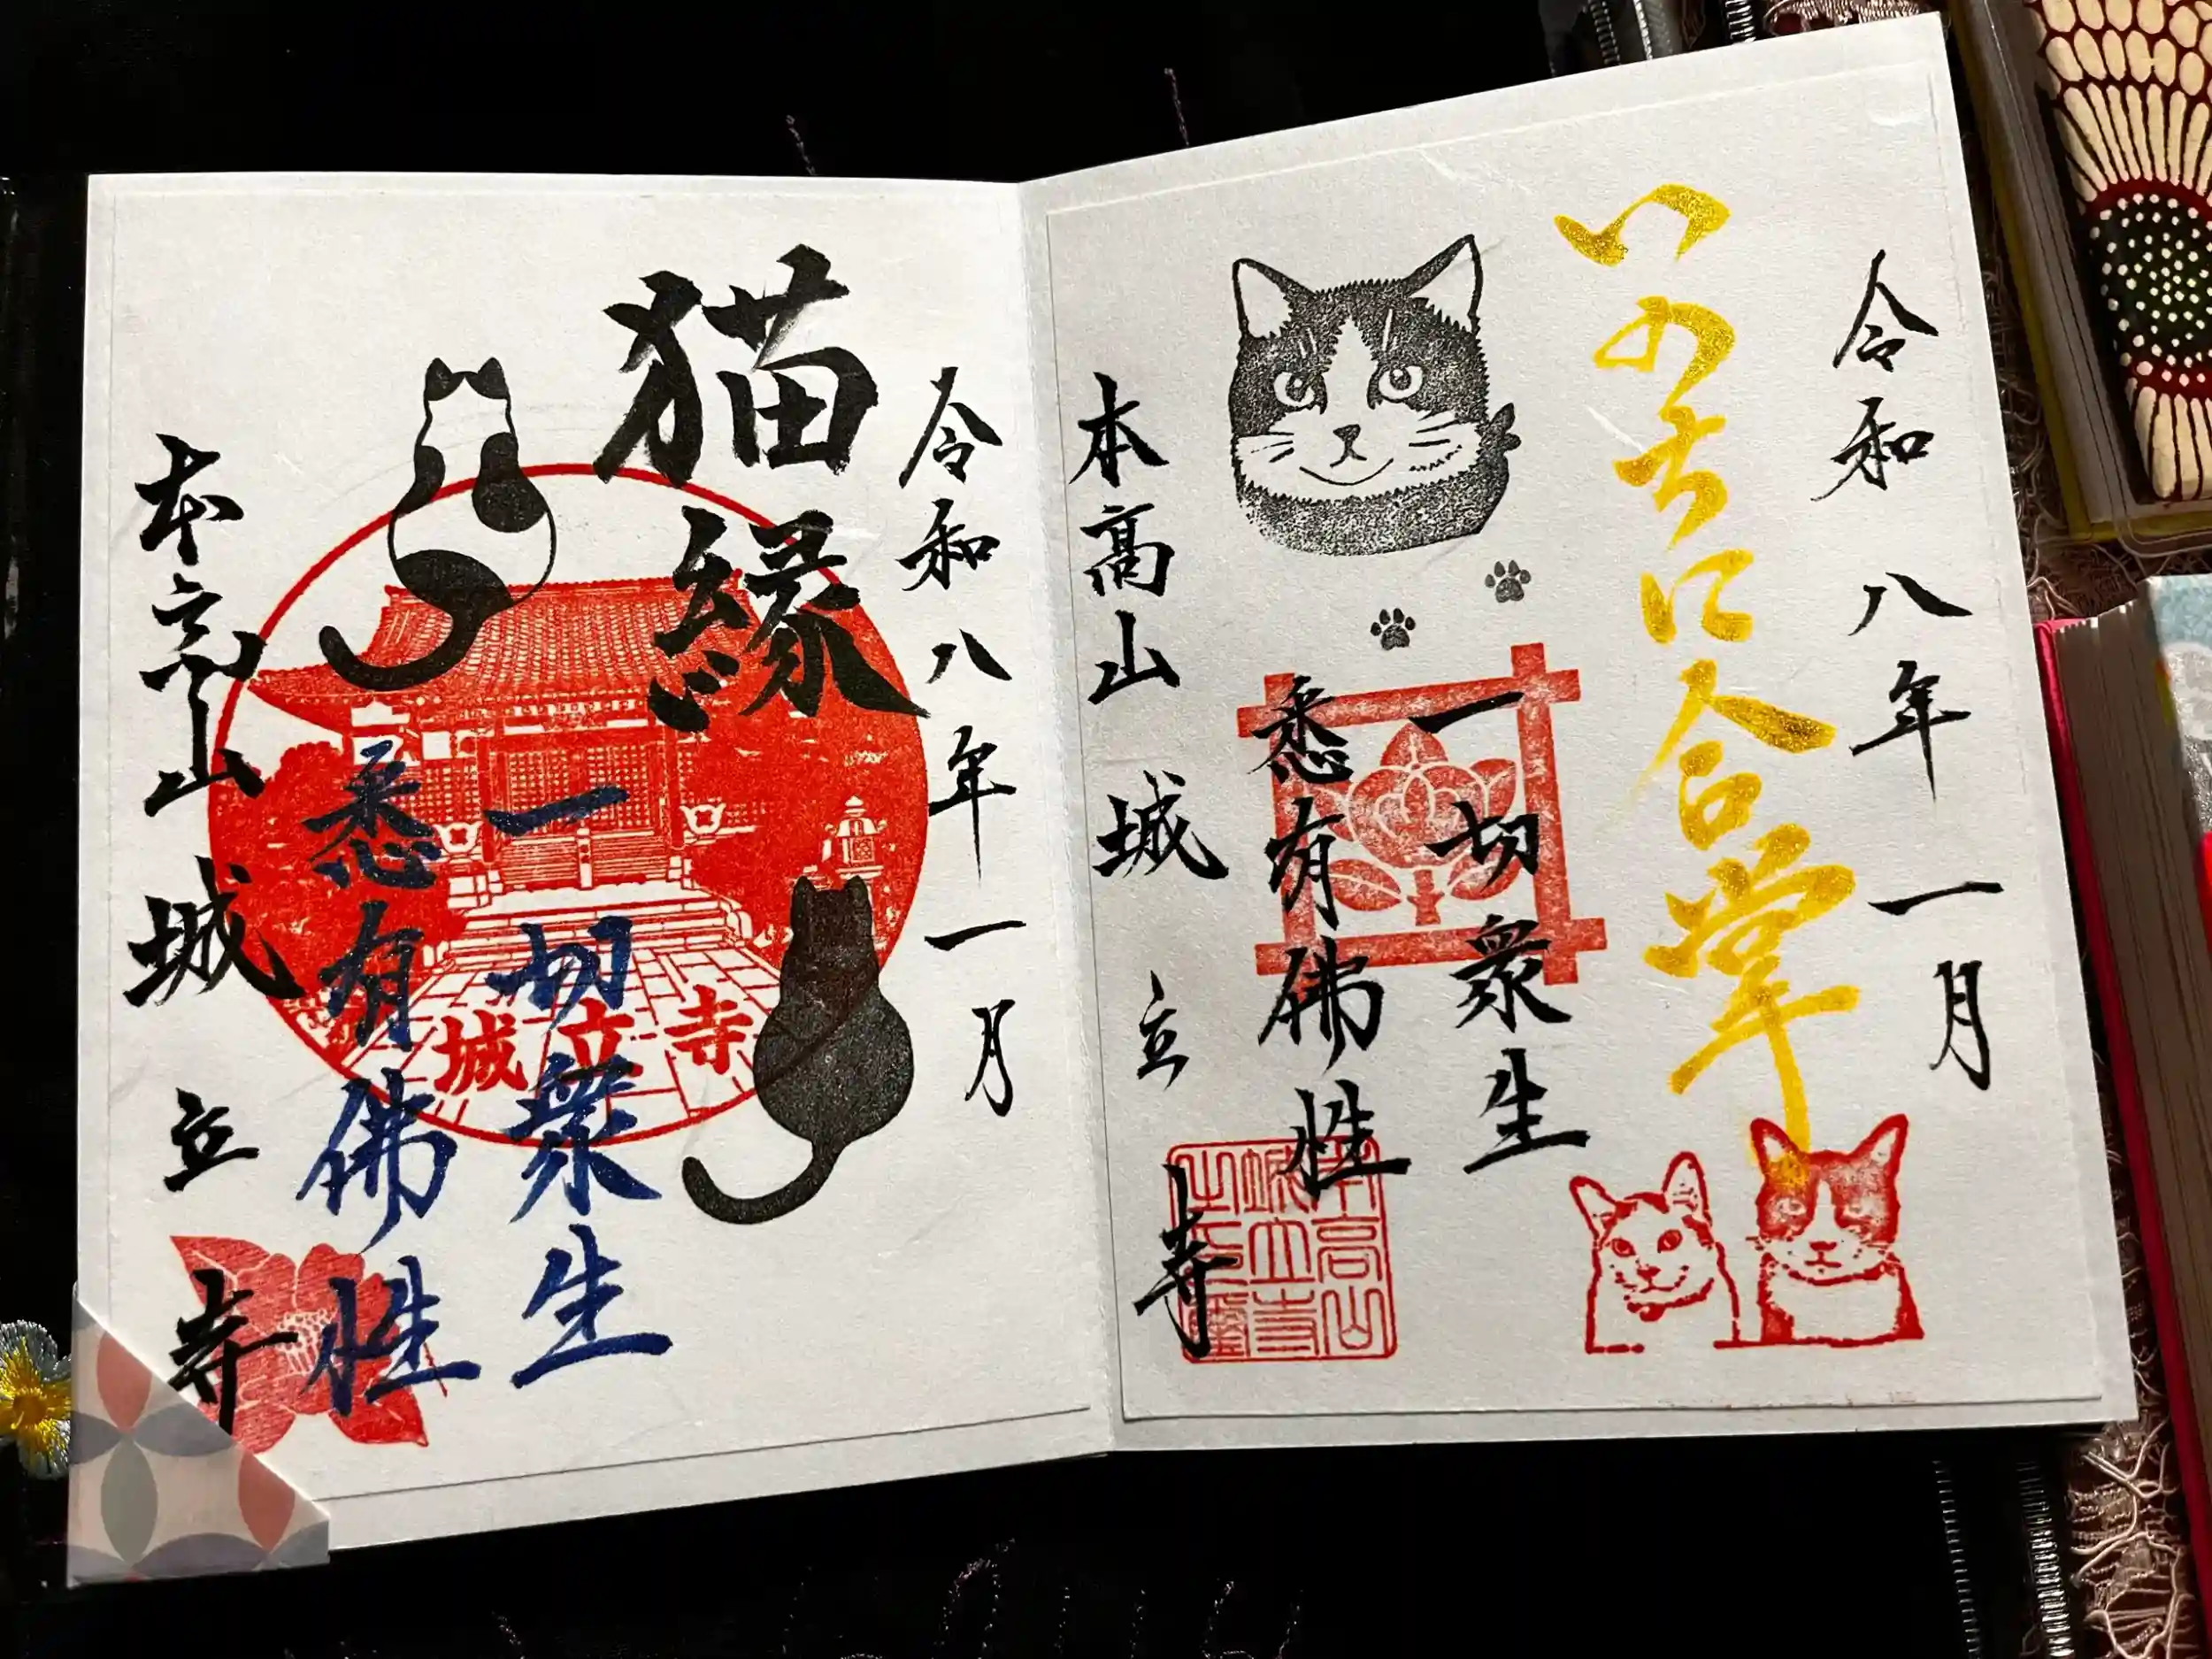 令和八年一月
いのちに合掌
一切衆生
悉有佛性
本高山 城立寺
本高山
城立寺
之
令和八年一月
猫縁
一切衆生
悉有佛性
城立寺
本高山 城立寺